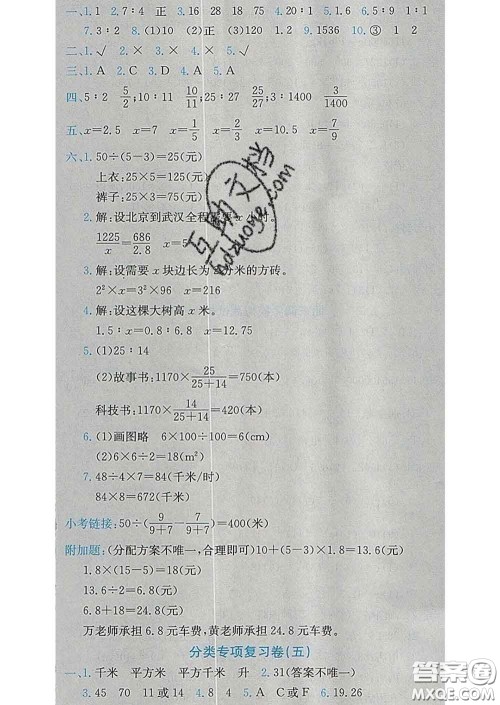 一、1.1 2.7∶4 正 4.15 18 20 25 4.20∶1 5.1.6 6.5∶9 9∶5
7.3 8.(1)10 (2)正 (3)2 1.2 9.1536 10.③ 1 1
二、1.√ 2.√ 5.√
三、1.A 2.C 3.D 4.A 5.A
四、5∶2 5/2;10∶11 10/11;25∶27 25/27;3∶1400 3/1400
五、x=2.5 x=7 x=1/5 x=2/3 x=10.5 x=7/9
六、1.50÷(5−3)=25(元)
上衣:25×5=125(元)
裤子:25×3=75(元)
2.解:设北京到武汉全程需要x小时。
1225/x=686/2.8 x=5
3.解:设需要x块边长为2分米的方砖。
2²×x=3²×96 x=216
4.解:设这棵大树高x米。
1.5∶x=0.8∶6.8 x=12.75
5.(1)25∶14
(2)故事书:1170×25/(25+14)=750(本)
科技书:1170×14/(25+14)=420(本)
6.(1)画图略 6×100÷100=6(cm)
(2)6×6÷2=18(m²)
7.48÷4×7=84(千米/时)
84×8=672(千米)
小考链接:50÷(9/(9+7)−7/(9+7))=400(米)
附加题:(分配方案不唯一,合理即可)10+(5−3)×1.8=13.6(元)
1.8×(15−5)=18(元)
13.6÷2=6.8(元)
18+6.8=24.8(元)
万老师承担6.8元车费,黄老师承担24.8元车费。
分类专项复习卷(五)
一、1.千米 平方米 平方千米 升 2.31(答案不唯一)
3.45 70 11或14 4.8 4 5.A C或F 6.19.26
互助文档
hdzuoye.com
答案圈
MXQE.COM